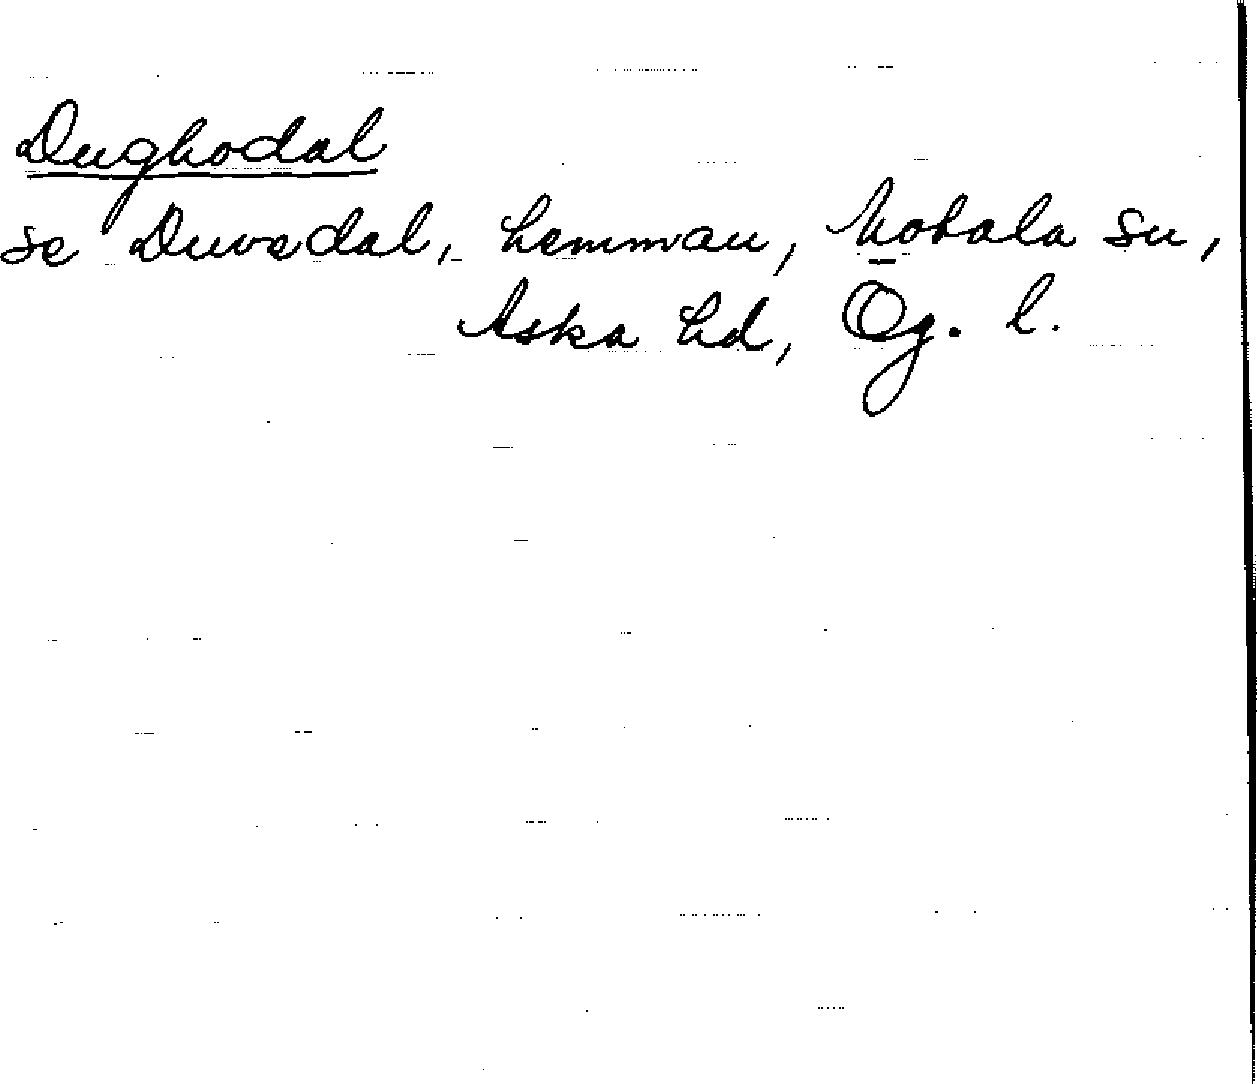 Dughodal
se Duvedal, hemman, Motala sn,
Aska hd, Og. l.